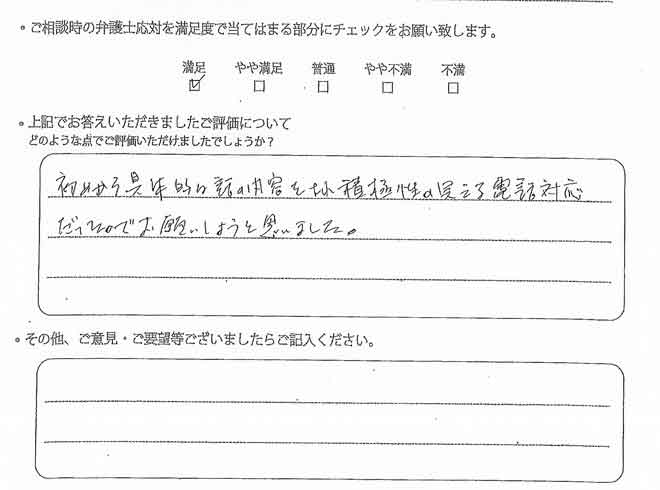 ・ご相談時の弁護士応対を満足度で当てはまる部分にチェックをお願い致します。
満足 やや満足 普通 やや不満 不満
☑ □ □ □ □
・上記でお答えいただきましたご評価について
どのような点でご評価いただけましたでしょうか？
初めから具体的な話の内容 積極性の見える電話対応
だったのでお願いしようと思いました。
・その他、ご意見・ご要望等ございましたらご記入ください。